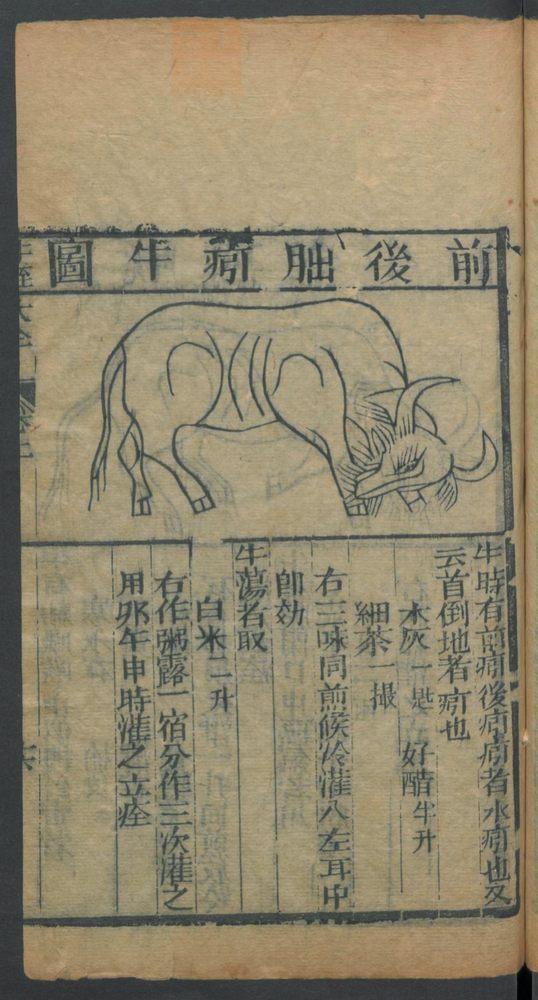 前後朏㾓牛圖
牛時有前㾓後㾓㾓者水㾓也又
云首倒地者㾓也
木灰一匙 好醋半升
細茶一撮
右三味同煎候冷灌入左耳中
即効
牛蕩者取
白米二升
右作粥露一宿分作三次灌之
用卯午申時灌之立痊
牛經大全